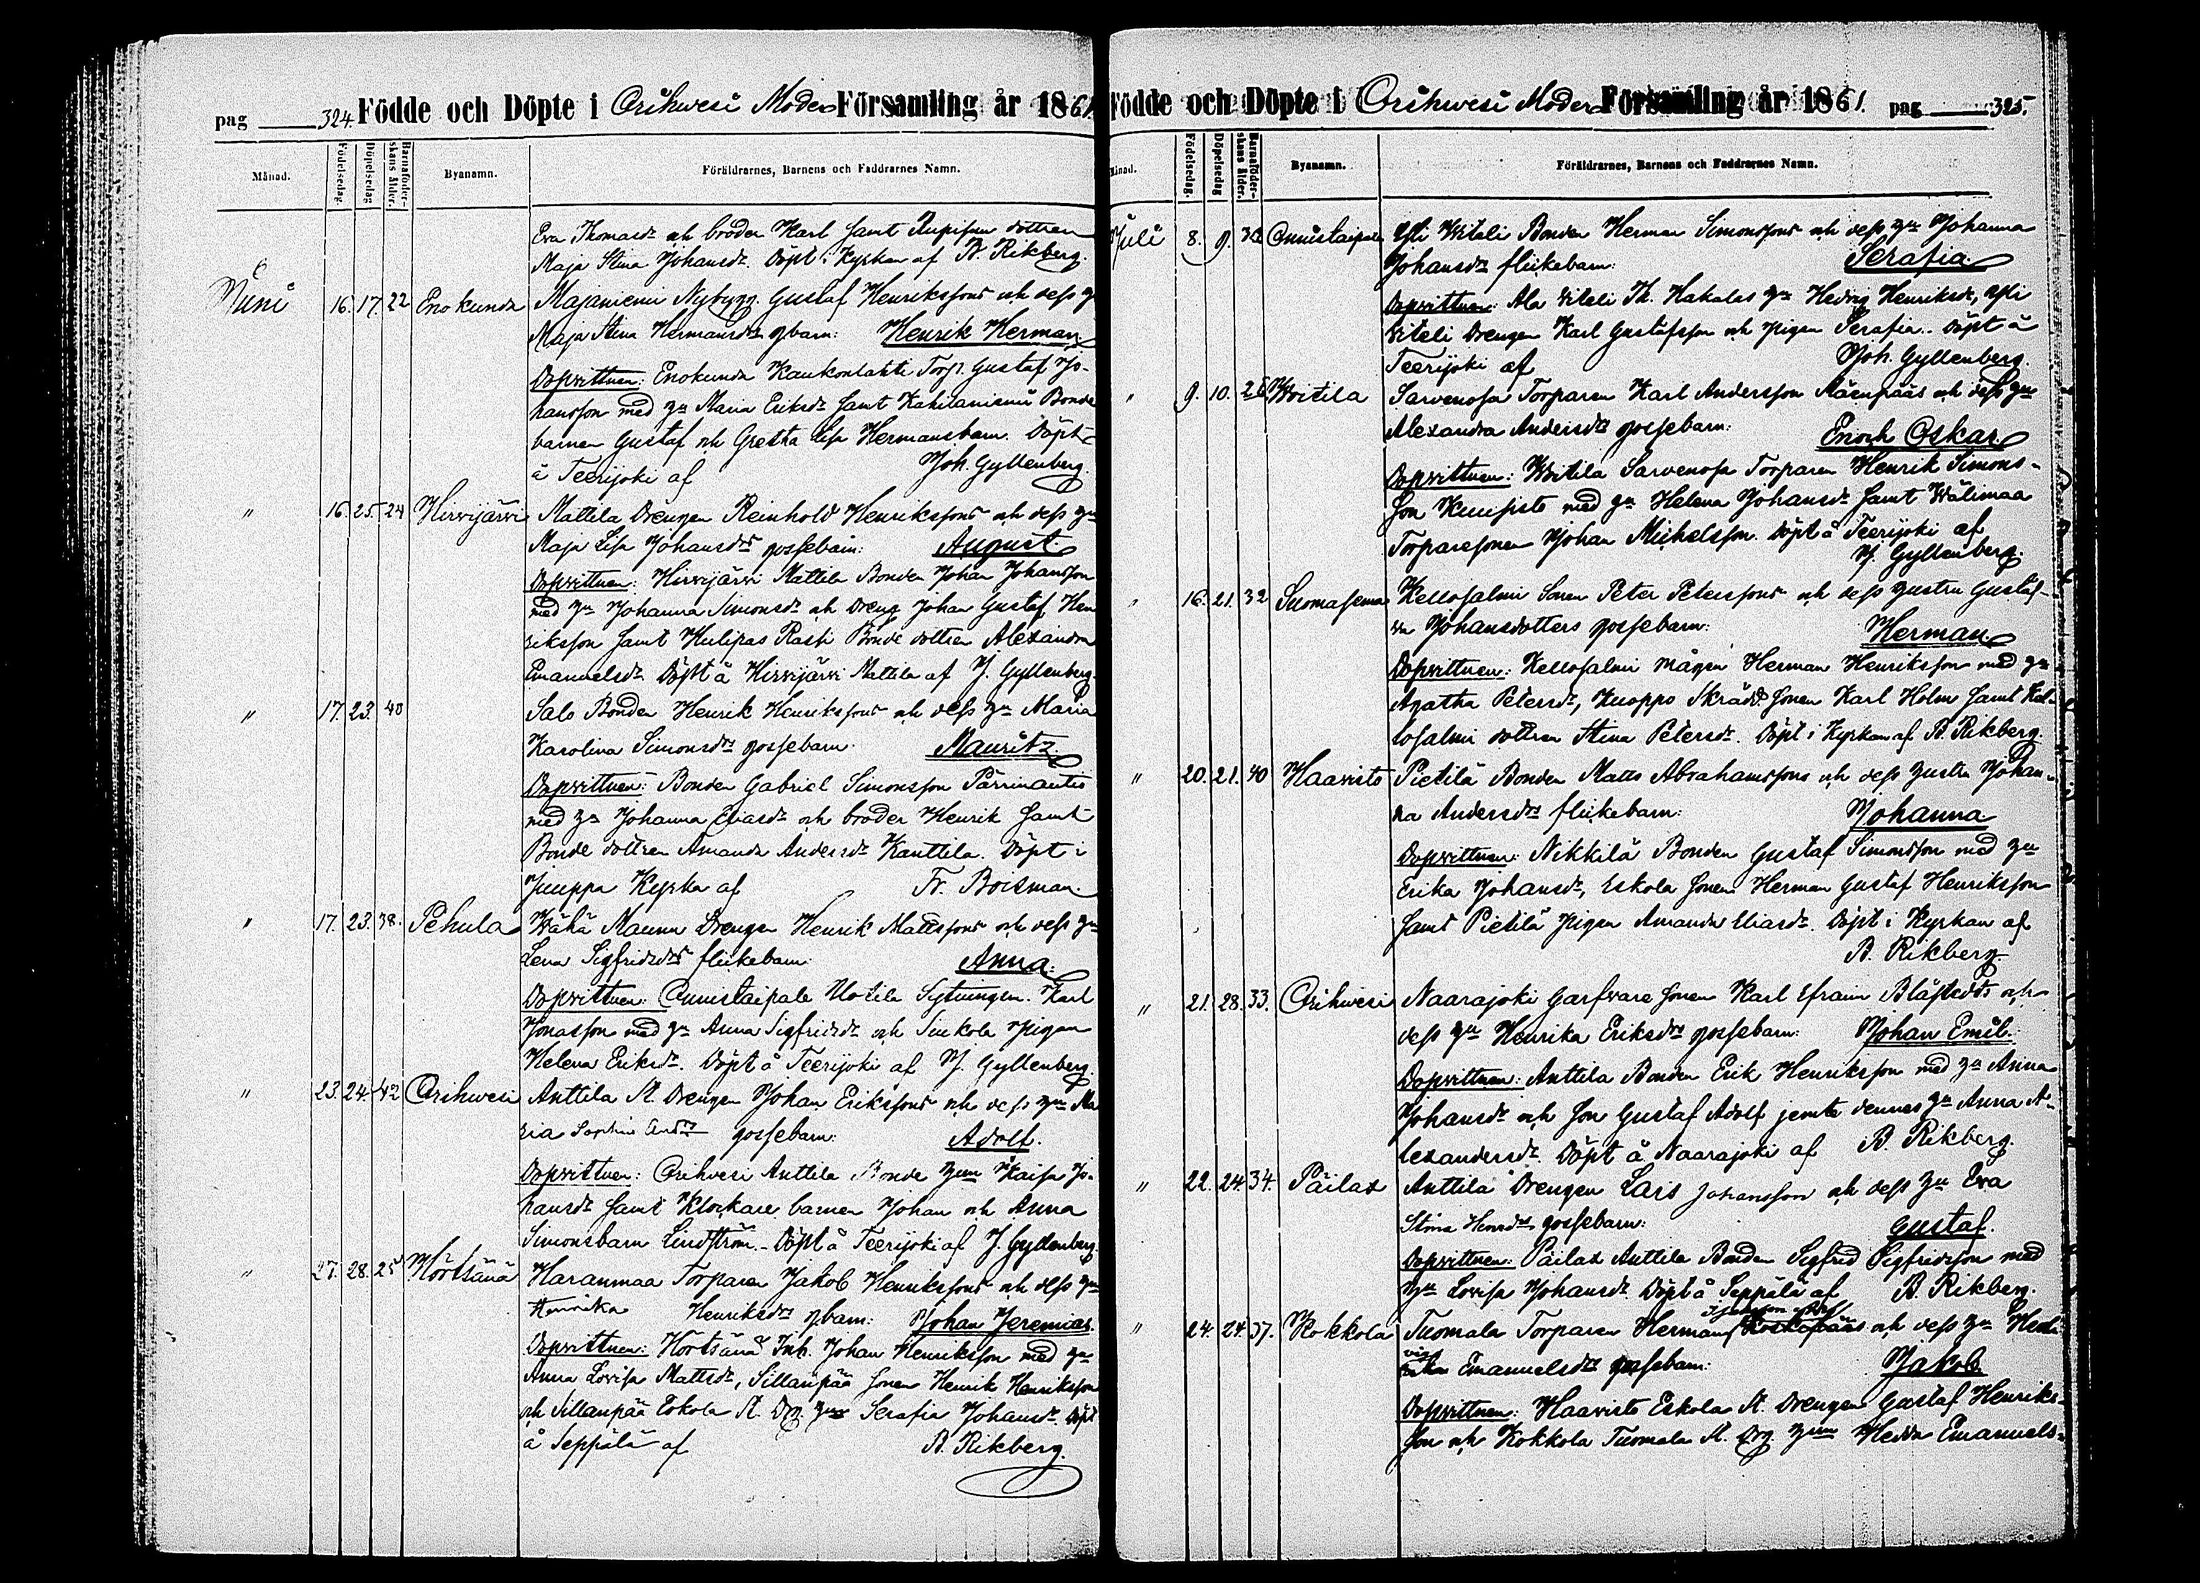 pag 324. Födde och Döpte i Orihwesi Moder Församling år 1861
Månad. Födelsedag. Döpelsedag Barnaföder-skans ålder. Byanamn. Föräldrarnes, Barnens och Faddrarnes Namn.
Eva Thomasdr och broder Karl samt dottren
Maja Stina Johansdr. Döpt i Kyrkan af B. Rikberg.
Juni 16. 17. 22 Enokunda Majaniemi Nybygg. Gustaf Henrikssons och dess h
Maja Stina Hermansdrs gbarn: Henrik Herman
Dopvittnen: Enokunda Kaukonlahti Torp. Gustaf Jo-
hansson med hu Maria Eriksdr samt Kakilaniemi Bonde
barnen Gustaf och Gretha Lisa Hermansbarn. Döpt
å Teerijoki af Joh. Gyllenberg.
" 16. 25. 24 Hirvijärvi Mattila Drengen Reinhold Henrikssons och dess hu
Maja Lisa Johansdrs gossebarn: August.
Dopvittnen: Hirvijärvi Mattila Bonden Johan Johansson
med hu Johanna Simonsdr och Dreng Johan Gustaf Hen
riksson samt Rasti Bonde dottren Alexandra
Emanuelsdr. Döpt å Hirvijärvi Mattila af J. Gyllenberg.
" 17. 23. 40 Salo Bonden Henrik Henrikssons och dess hu Maria
Karolina Simonsdrs gossebarn: Mauritz.
Dopvittnen: Bonden Gabriel Simonsson
med hu Johanna Eliasdr och broder Henrik samt
Bonde dottren Amanda Andersdr Kanttila. Döpt i
Juuppa Kyrka af Fr. Boisman.
" 17. 23. 38. Pehula Wähä Maunu Drengen Henrik Mattssons och dess hu
Lena Sigfridsdrs flickebarn: Anna.
Dopvittnen: Onnistaipale Uotila Sytningen. Karl
Jonasson med hu Anna Sigfridsdr och pigan
Helena Eriksdr. Döpt å Teerijoki af J. Gyllenberg.
" 23. 24. 42 Orihwesi Anttila St. Drengen Johan Erikssons och dess hu Ma
ria Sophia Andrs gossebarn: Adolf.
Dopvittnen: Orihvesi Anttila Bonde hun Kaisa Jo-
hansdr samt Klockare barnen Johan och Anna
Simonsbarn Lindström. Döpt å Teerijoki af J. Gyllenberg
" 27. 28. 25 Hörtsänä Haranmaa Torparen Jakob Henrikssons och dess hu
Henrika Henriksdrs gbarn: Johan Jeremias.
Dopvittnen: Hörtsänä Inh. Johan Henriksson med hu
Anna Lovisa Mattsdr, Sillanpää sonen Henrik Henriksson
och Sillanpää Eskola St. Drg. hun Serafia Johansdr. Döpt
å Seppälä af B. Rikberg.
Födde och Döpte i Orihwesi Moder Församling år 1861. pag 325.
Månad. Födelsedag. Döpelsedag Barnaföder-skans ålder. Byanamn. Föräldrarnes, Barnens och Faddrarnes Namn.
Juli 8. 9. Onnistaipale Yli Witali Bonden Herman Simonssons och dess hu Johanna
Johansdrs flickebarn: Serafia
Dopvittnen: Ala Vitali Th. Hakalas hu Hedvig Henriksdr, Yli
Vitali Drengen Karl Gustafsson och pigan Serafia. Döpt å
Teerijoki af Joh. Gyllenberg.
" 9. 10. 26 Woitila Sarvenoja Torparen Karl Andersson Mäenpääs och dess hu
Alexandra Andersdrs gossebarn: Enoch Oskar
Dopvittnen: Woitila Sarvenoja Torparen Henrik Simons-
son med hu Helena Johansdr samt Wälimaa
Torparesonen Johan Michelsson. Döpt å Teerijoki af
J. Gyllenberg.
" 16. 21. 32 Suomasema Kellosalmi Sonen Peter Peterssons och dess hustru Gusta-
va Johansdotters gossebarn: Herman
Dopvittnen: Kellosalmi mågen Herman Henriksson med hu
Agatha Petersdr, Knoppo Skrädd. sonen Karl Holm samt Kel-
losalmi dottren Stina Petersdr. Döpt i Kyrkan af B. Rikberg.
" 20. 21. 40 Haavisto Pietilä Bonden Matts Abrahamssons och dess hustru Johan-
na Andersdrs flickebarn: Johanna
Dopvittnen: Nikkilä Bonden Gustaf Simonsson med hu
Erika Johansdr, Eskola sonen Herman Gustaf Henriksson
samt Pietilä pigan Amanda Eliasdr. Döpt i Kyrkan af
B. Rikberg.
" 21. 28. 33. Orihwesi Naarajoki Garfvare sonen Karl Efraim Blåfjedds och
dess hu Henrika Eriksdrs gossebarn: Johan Emil.
Dopvittnen: Anttila Bonden Erik Henriksson med hu Anna
Johansdr och son Gustaf Adolf jemte dennes hu Anna A-
lexandersdr. Döpt å Naarajoki af B. Rikberg.
" 22. 24. 34. Päilax Anttila Drengen Lars Johansson och dess hu Eva
Stina Henrdrs gossebarn: Gustaf.
Dopvittnen: Päilax Anttila Bonden Sigfrid Sigfridsson med
hu Lovisa Johansdr. Döpt å Seppälä af B. Rikberg.
" 24. 24. 37. Kokkola Tuomala Torparen Hermans Koskipääs och dess hu Hed
vig Emanuelsdrs gossebarn: Jakob
Dopvittnen: Haavisto Eskola St. Drengen Gustaf Henriks-
son och Kokkola Tuomala St. Drg. hun Hedda Emanuels-